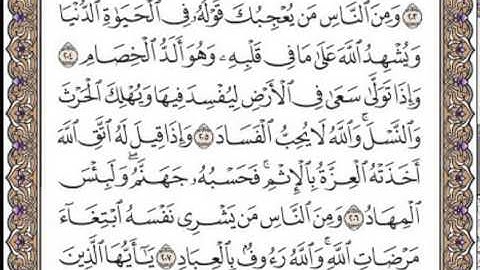 ٢٠٣ وَمِنَ ٱلنَّاسِ مَن يُعْجِبُكَ قَوْلُهُۥ فِى ٱلْحَيَوٰةِ ٱلدُّنْيَا
وَيُشْهِدُ ٱللَّهَ عَلَىٰ مَا فِى قَلْبِهِۦ وَهُوَ أَلَدُّ ٱلْخِصَامِ ٢٠٤
وَإِذَا تَوَلَّىٰ سَعَىٰ فِى ٱلْأَرْضِ لِيُفْسِدَ فِيهَا وَيُهْلِكَ ٱلْحَرْثَ
وَٱلنَّسْلَ ۗ وَٱللَّهُ لَا يُحِبُّ ٱلْفَسَادَ ٢٠٥ وَإِذَا قِيلَ لَهُ ٱتَّقِ ٱللَّهَ
أَخَذَتْهُ ٱلْعِزَّةُ بِٱلْإِثْمِ ۚ فَحَسْبُهُۥ جَهَنَّمُ ۚ وَلَبِئْسَ
ٱلْمِهَادُ ٢٠٦ وَمِنَ ٱلنَّاسِ مَن يَشْرِى نَفْسَهُ ٱبْتِغَآءَ
مَرْضَاتِ ٱللَّهِ ۗ وَٱللَّهُ رَءُوفٌۢ بِٱلْعِبَادِ ٢٠٧ يَٰٓأَيُّهَا ٱلَّذِينَ